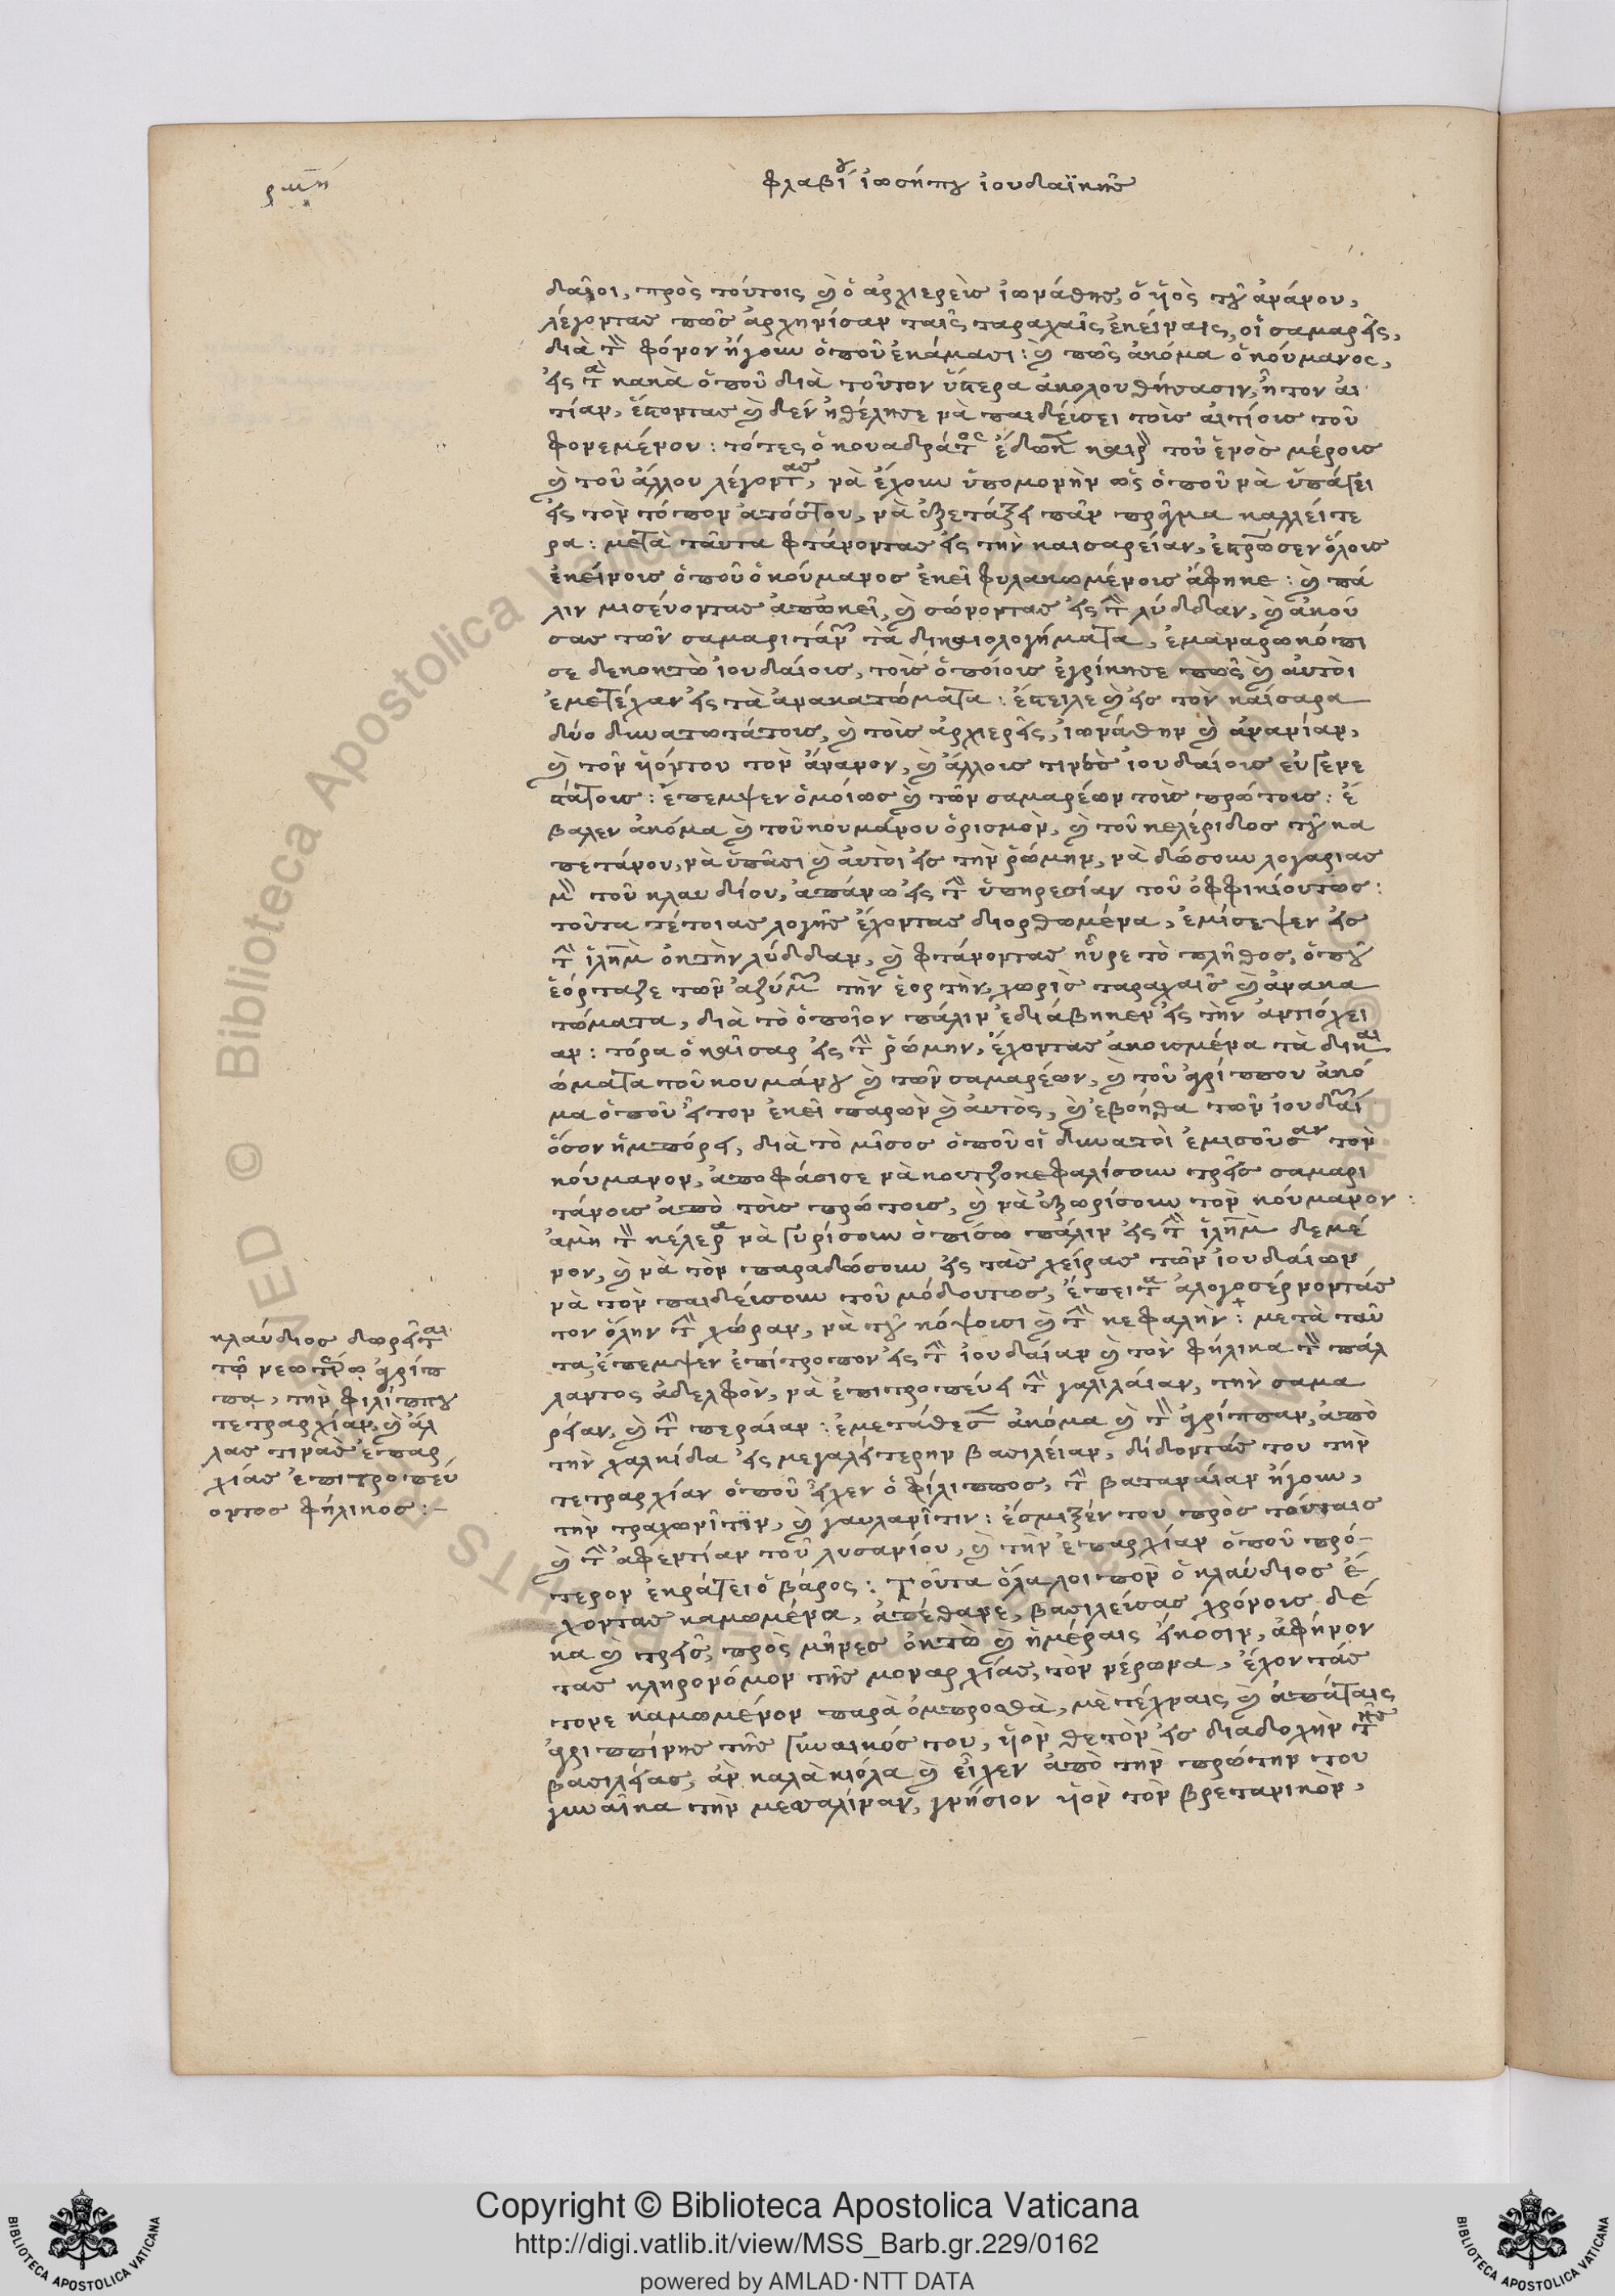 ρμη
φλαβίου ἰωσήπου ἰουδαϊκῆς
δαῖοι, πρὸς τούτοις καὶ ὁ ἀρχιερεὺς ἰωνάθης, ὁ ὑιὸς τοῦ ἀνάνου,
λέγοντας πῶς ἀρχηνίσαν ταῖς ταραχαῖς ἐκείναις, οἱ σαμαρεῖς,
διὰ τὸν φόνον ἤγουν ὁποῦ ἐκάμασι: καὶ πῶς ἀκόμα ὁ κούμανος,
εἰς τὰ κακὰ ὁποῦ διὰ τοῦτον ὕστερα ἀκολουθήσασιν, ἦτον αἰ
τίαν, ἔστοντας καὶ δὲν ἠθέλησε νὰ παιδεύσει τοὺς αἰτίους τοῦ
φονεμένου: τότες ὁ κουαδράτος ἔδωκε καιρὸν τοῦ ἑνὸς μέρους
καὶ τοῦ ἄλλου λέγοντας, νὰ ἔχουν ὑπομονὴν ὡς ὁποῦ νὰ ὑπάγει
εἰς τὸν τόπον ἀτόστου, νὰ ἐξετάξει πᾶν πρᾶγμα καλλείτε
ρα: μετὰ ταῦτα φτάνοντας εἰς τὴν καισαρείαν, ἐσταύρωσεν ὅλους
ἐκείνους ὁποῦ ὁ κούμανος ἐκεῖ φυλακωμένους ἄφηκε: καὶ πά
λιν μισεύοντας ἀπῶκεῖ, καὶ σώνοντας εἰς τὴν λύδδαν, καὶ ἀκού
σας τῶν σαμαριτάνων τὰ δικαιολογήματα, ἐμαναρωκόπι
σε δεκοκτὼ ἰουδαίους, τοὺς ὁποίους ἐγρίκησε πῶς καὶ αὐτοὶ
ἐμετέχαν εἰς τὰ ἀνακατώματα: ἔστειλε καὶ εἰς τὸν καίσαρα
δύο δυνατωτάτους, καὶ τοὺς ἀρχιερεῖς, ἰωνάθην καὶ ἀνανίαν,
καὶ τὸν ὑιόντου τὸν ἄνανον, καὶ ἄλλους τινὰς ἰουδαίους εὐγενε
στάτους: ἔπεμψεν ὁμοίως καὶ τῶν σαμαρέων τοὺς πρώτους: ἔ
βαλεν ἀκόμα καὶ τοῦ κουμάνου ὁρισμὸν, καὶ τοῦ κελέριδος τοῦ κα
πετάνου, νὰ ὑπᾶσι καὶ αὐτοὶ εἰς τὴν ῥώμην, νὰ δώσουν λογαριασ
μὸν τοῦ κλαυδίου, ἀπάνω εἰς τὴν ὑπηρεσίαν τοῦ ὀφφικίουτως:
τοῦτα τέτοιας λογῆς ἔχοντας διορθωμένα, ἐμίσεψεν εἰς
τὴν ἱλημ ὀκ τὴν λύδδαν, καὶ φτάνοντας ηὗρε τὸ πλῆθος, ὁποῦ
ἑόρταζε τῶν ἀζύμων τὴν ἑορτὴν, χωρὶς ταραχαῖς καὶ ἀνακα
τώματα, διὰ τὸ ὁποῖον πάλιν ἐδιάβηκεν εἰς τὴν ἀντιόχει
αν: τόρα ὁ καῖσαρ εἰς τὴν ῥώμην, ἔχοντας ἀκουσμένα τὰ δικαι
ώματα τοῦ κουμάνου καὶ τῶν σαμαρέων, καὶ τοῦ ἀγρίππου ἀκό
μα ὁποῦ εἶτον ἐκεῖ παρὼν καὶ αὐτὸς, καὶ ἐβοήθα τῶν ἰουδαί
ὅσον ἠμπόρει, διὰ τὸ μῖσος ὁποῦ οἱ δυνατοὶ ἐμισοῦσαν τὸν
κούμανον, ἀποφάσισε νὰ κουτζοκεφαλίσουν τρεῖς σαμαρι
τάνους ἀπὸ τοὺς πρώτους, καὶ νὰ ἐξωρίσουν τὸν κούμανον:
ἀμὴ τὸν κέλερα νὰ γυρίσουν ὀπίσω πάλιν εἰς τὴν ἱλημ δεμέ
νον, καὶ νὰ τὸν παραδώσουν εἰς τὰς χεῖρας τῶν ἰουδαίων
νὰ τὸν παιδεύσουν τοῦ μόδουτως, ἔπειτα ἀλογοσέρνοντάς
τον ὅλην τὴν χώραν, νὰ τοῦ κόψουσι καὶ τὴν κεφαλὴν: μετὰ ταῦ
τα, ἔπεμψεν ἐπίτροπον εἰς τὴν ἰουδαίαν καὶ τὸν φήλικα τὸν πάλ
λαντος ἀδελφὸν, νὰ ἐπιτροπεύει τὴν γαλιλάιαν, τὴν σαμα
ρείαν, καὶ τὴν περαίαν: ἐμετάθεσεν ἀκόμα καὶ τὸν ἀγρίππαν, ἀπὸ
τὴν χαλκίδα εἰς μεγαλείτερην βασιλείαν, δίδοντάς του τὴν
τετραρχίαν ὁποῦ εἶχεν ὁ φίλιππος, τὴν βαταναίαν ἤγουν,
τὴν τραχωνῖτιν, καὶ γαυλανῖτιν: ἔσμιξέν του πρὸς τούταις
καὶ τὴν ἀφεντίαν τοῦ λυσανίου, καὶ τὴν ἐπαρχίαν ὁποῦ πρό-
τερον ἐκράτει ὁ βάρος: Τοῦτα ὅλα λοιπὸν ὁ κλαύδιος ἔ
χοντας καμωμένα, ἀπέθανε, βασιλεύσας χρόνους δέ
κα καὶ τρεῖς, πρὸς μῆνες ὀκτὼ καὶ ἡμέραις εἴκοσιν, ἀφήνον
τας κληρονόμον τῆς μοναρχίας, τὸν νέρωνα, ἔχοντάς
τονε καμωμένον παρὰ ὀμπροσθὰ, μὲ τέχναις καὶ ἀπάταις
ἀγριππίνης τῆς γυναικός του, ὑιὸν θετὸν εἰς διαδοχὴν τῆς
βασιλείας, ἂν καλὰ κιόλα καὶ εἶχεν ἀπὸ τὴν πρώτην του
γυναῖκα τὴν μεσαλίναν, γνήσιον ὑιὸν τὸν βρετανικὸν,
κλαύδιος δωρεῖται
τῷ νεωτέρῳ ἀγρίπ
πᾳ, τὴν φιλίππου
τετραρχίαν, καὶ ἄλ
λας τινὰς ἐπαρ
χίας ἐπιτροπεύ
οντος φήλικος:-
Copyright © Biblioteca Apostolica Vaticana
http://digi.vatlib.it/view/MSS_Barb.gr.229/0162
powered by AMLAD·NTT DATA
BIBLIOTECA APOSTOLICA VATICANA
BIBLIOTECA APOSTOLICA VATICANA